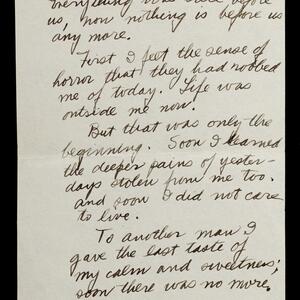 Everything was once before
us, now nothing is before us
any more.
First I felt the sense of
horror that they had robbed
me of today. Life was
outside me now.
But that was only the
beginning. Soon I learned
the deeper pains of yester-
days stolen from me too.
and soon I did not care
to live.
To another man I
gave the last taste of
my calm and sweetness;
soon there was no more.